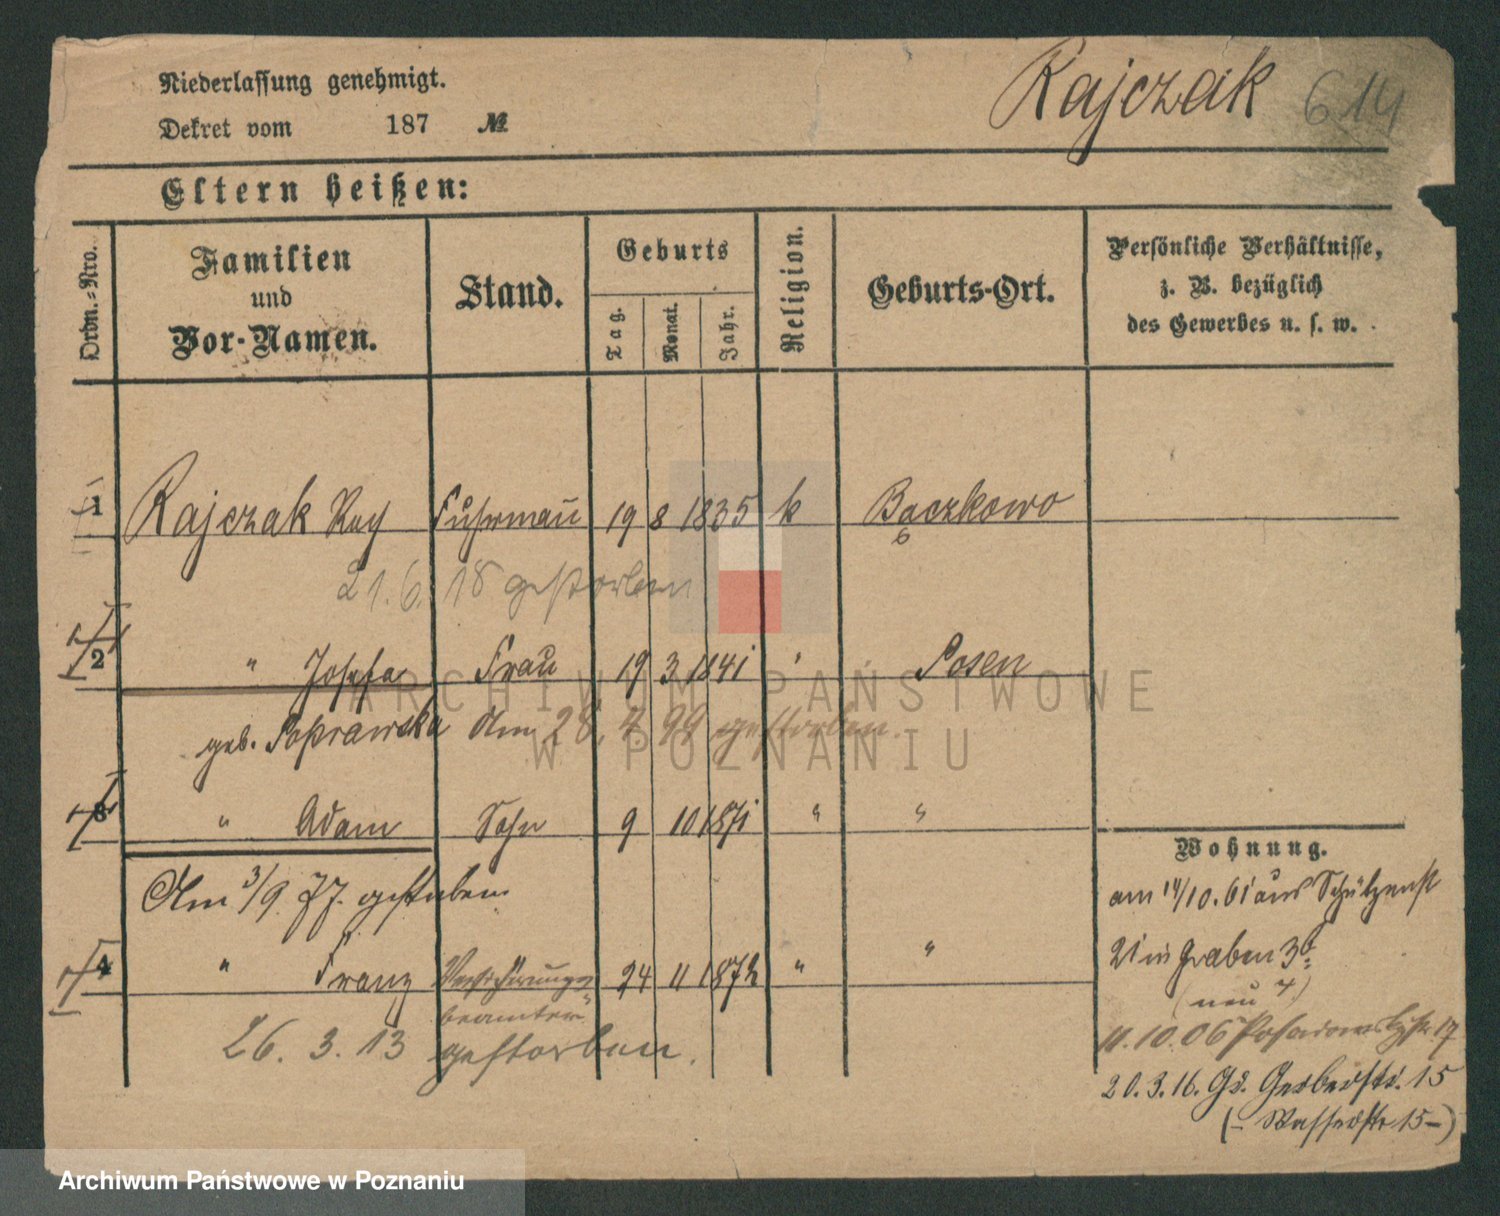 Niederlassung genehmigt.
Rajczak 614
Dekret vom 187 №
Eltern heißen:
Ordn.-Nro.
Familien und Vor-Namen.
Stand.
Geburts
Tag. Monat. Jahr.
Religion.
Geburts-Ort.
Persönliche Verhältnisse,
z. B. bezüglich
des Gewerbes u. s. w.
1 Rajczak Fuhrmann 19 8 1835 k Baczkowo
21. 6. 18 gestorben
2 " Josefa Frau 19 3 1841 " Posen
geb. Poprawska Am 28. 7. 99 gestorben.
3 " Adam Sohn 9 10 1871 " "
Am 3/9. 77. gestorben
4 " Franz Versicherungs- 24 11 1872 " "
beamter
26. 3. 13 gestorben.
Wohnung.
am 14/10. 61 aus Schützenst
21 in Graben 3b
(neu 7)
11. 10. 06 Posadowskystr. 17
20. 3. 16. Gr. Gerberstr. 15
(– Wasserstr 15 –)
ARCHIWUM PAŃSTWOWE
W POZNANIU
Archiwum Państwowe w Poznaniu